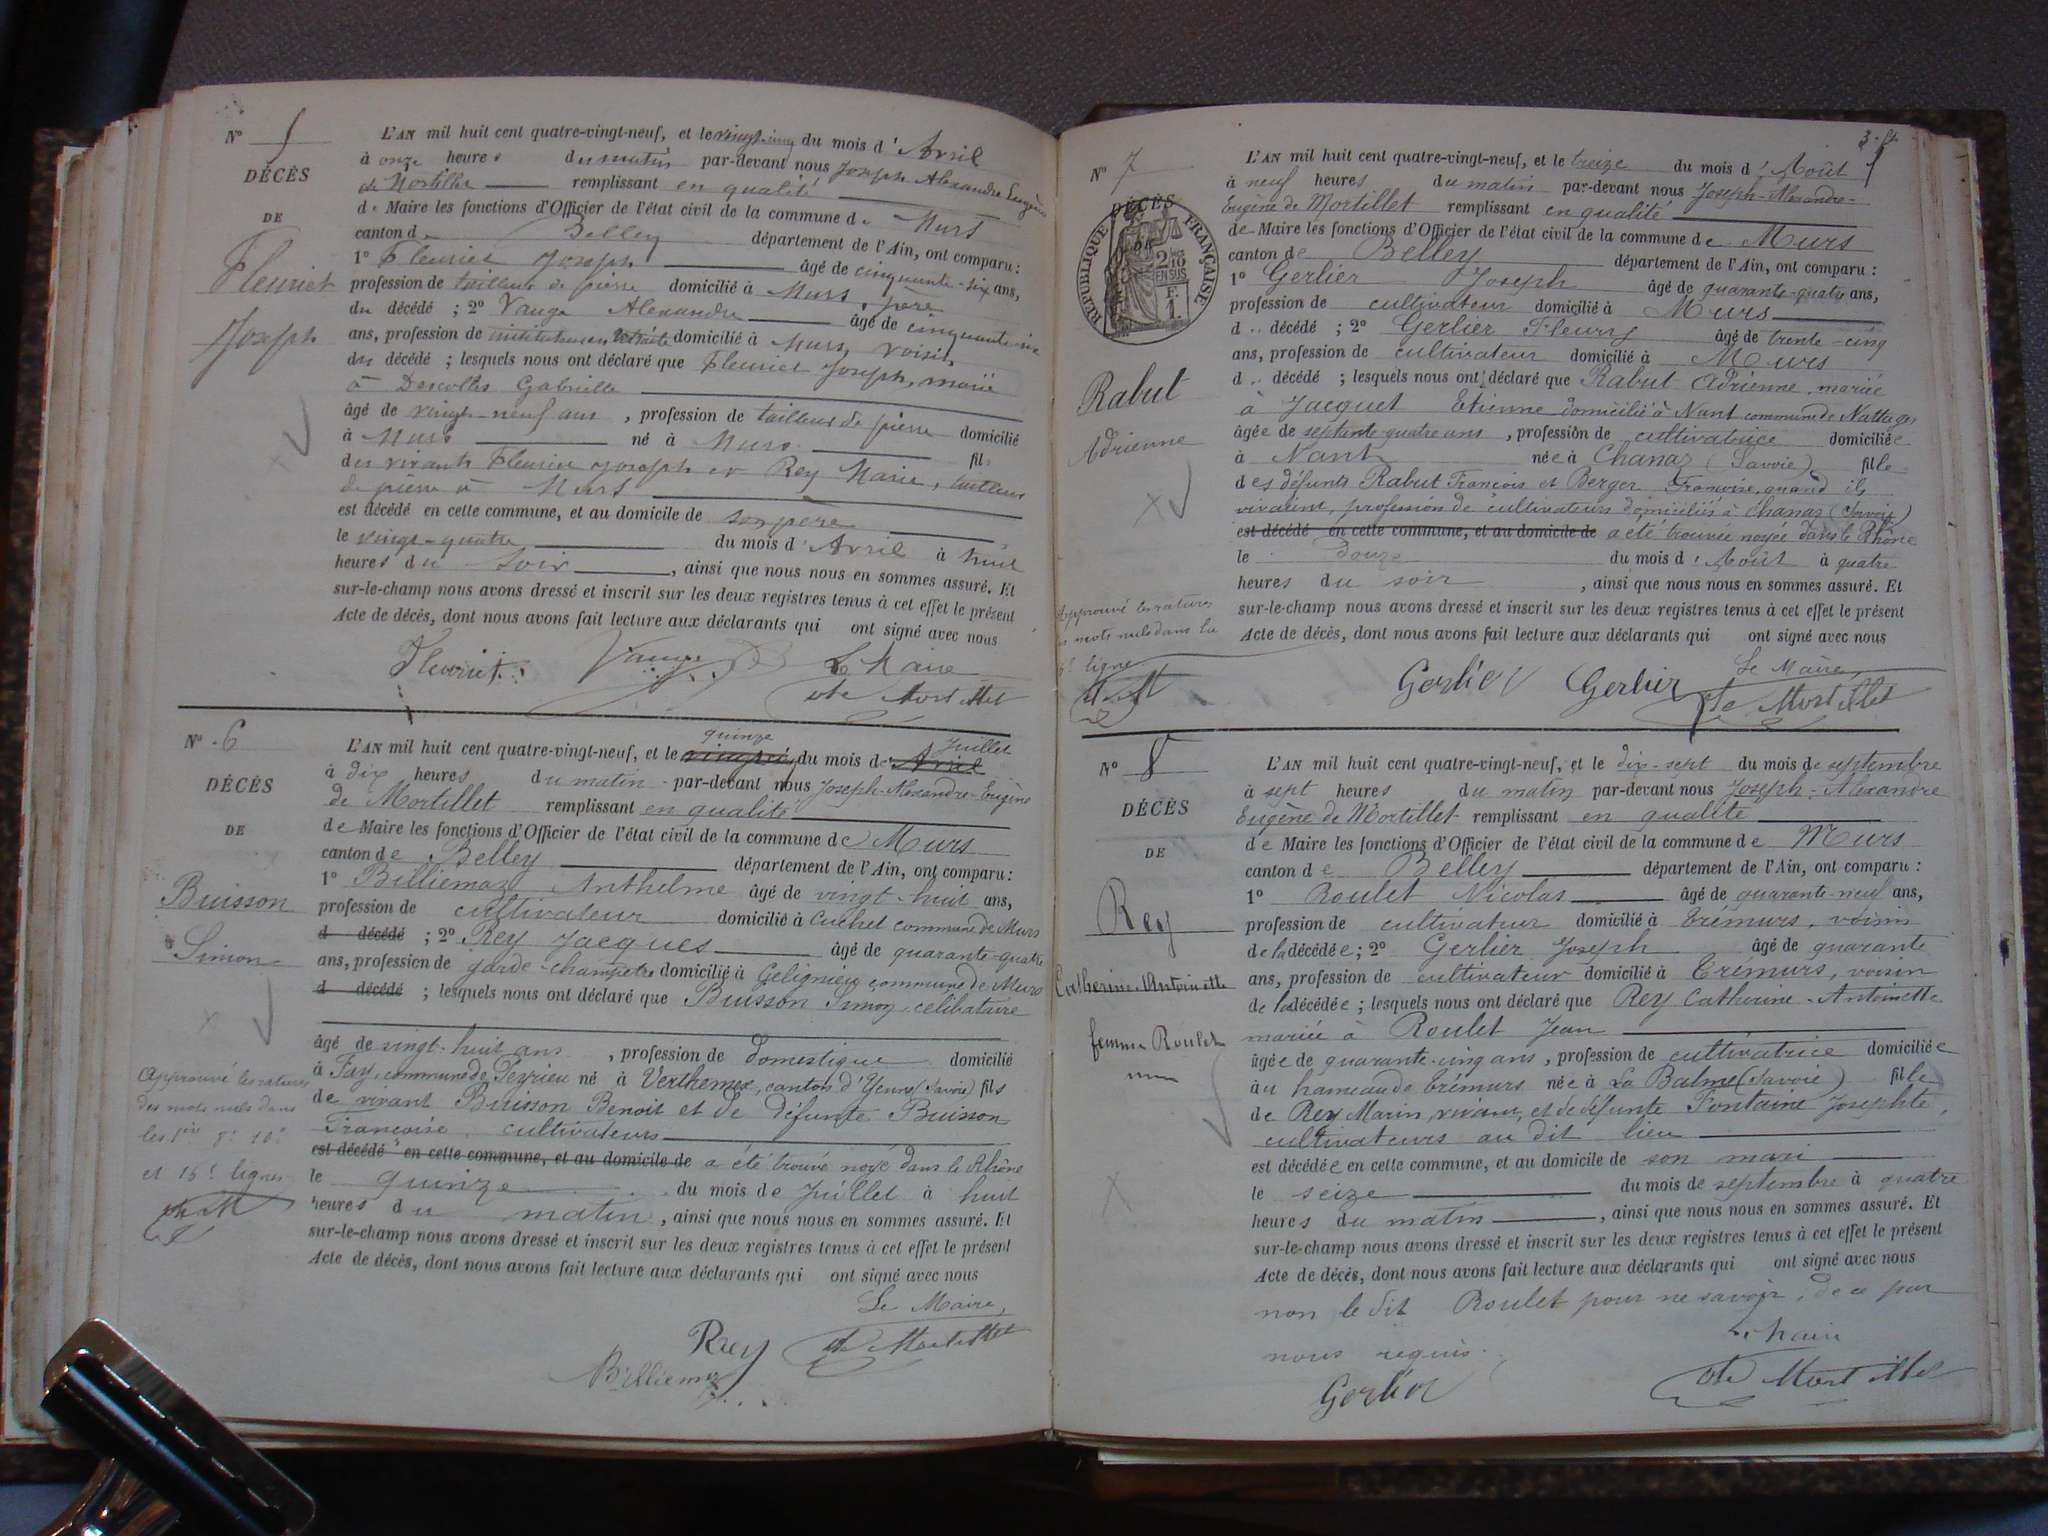 Nº 5
DÉCÈS
DE
Fleuriet
Joseph
L'AN mil huit cent quatre-vingt-neuf, et le vingt-cinq du mois d'Avril
à onze heures du matin par-devant nous Joseph Alexandre Eugène
de Mortillet remplissant en qualité
de Maire les fonctions d'Officier de l'état civil de la commune de Murs
canton de Belley département de l'Ain, ont comparu :
1º Fleuriet Joseph âgé de cinquante-six ans,
profession de tailleur de pierre domicilié à Murs, père
du décédé ; 2º Vauge Alexandre âgé de cinquante-six
ans, profession de instituteur retraité domicilié à Murs, voisin
du décédé ; lesquels nous ont déclaré que Fleuriet Joseph, marié
à Descottes Gabrielle
âgé de vingt-neuf ans, profession de tailleur de pierre domicilié
à Murs né à Murs fils
des vivants Fleuriet Joseph et Rey Marie, tailleur
de pierre à Murs
est décédé en cette commune, et au domicile de son père
le vingt-quatre du mois d'Avril à huit
heures du soir, ainsi que nous nous en sommes assuré. Et
sur-le-champ nous avons dressé et inscrit sur les deux registres tenus à cet effet le présent
Acte de décès, dont nous avons fait lecture aux déclarants qui ont signé avec nous
Fleuriet Vauge Le Maire
de Mortillet
Nº 6
DÉCÈS
DE
Buisson
Simon
Approuvé les ratures
des mots nuls dans
les 1ère 8e 10e
et 16e lignes
de M
L'AN mil huit cent quatre-vingt-neuf, et le quinze du mois de Juillet
à dix heures du matin par-devant nous Joseph-Alexandre-Eugène
de Mortillet remplissant en qualité
de Maire les fonctions d'Officier de l'état civil de la commune de Murs
canton de Belley département de l'Ain, ont comparu :
1º Billiemaz Anthelme âgé de vingt-huit ans,
profession de cultivateur domicilié à Cuchet commune de Murs
d décédé ; 2º Rey Jacques âgé de quarante-quatre
ans, profession de garde-champêtre domicilié à Gelignieu commune de Murs
d décédé ; lesquels nous ont déclaré que Buisson Simon, célibataire
âgé de vingt-huit ans, profession de domestique domicilié
à Fay, commune de Peyrieu né à Verthemex, canton d'Yenne (Savoie) fils
de vivant Buisson Benoit et de défunte Buisson
Françoise, cultivateurs
est décédé en cette commune, et au domicile de a été trouvé noyé dans le Rhône
le quinze du mois de Juillet à huit
heures du matin, ainsi que nous nous en sommes assuré. Et
sur-le-champ nous avons dressé et inscrit sur les deux registres tenus à cet effet le présent
Acte de décès, dont nous avons fait lecture aux déclarants qui ont signé avec nous
Le Maire,
Rey de Mortillet
Billiemaz
3e f.
Nº 7
DÉCÈS
DE
RÉPUBLIQUE FRANÇAISE
2/10 EN SUS
F. 1.
Rabut
Adrienne
Approuvé les ratures
des mots nuls dans la
ligne
de M
L'AN mil huit cent quatre-vingt-neuf, et le treize du mois d'Août
à neuf heures du matin par-devant nous Joseph-Alexandre-
Eugène de Mortillet remplissant en qualité
de Maire les fonctions d'Officier de l'état civil de la commune de Murs
canton de Belley département de l'Ain, ont comparu :
1º Gerlier Joseph âgé de quarante-quatre ans,
profession de cultivateur domicilié à Murs
d.. décédé ; 2º Gerlier Fleury âgé de trente-cinq
ans, profession de cultivateur domicilié à Murs
d.. décédé ; lesquels nous ont déclaré que Rabut Adrienne, mariée
à Jacquet Etienne domicilié à Nant commune de Nattages
âgée de septante-quatre ans, profession de cultivatrice domiciliée
à Nant née à Chanaz (Savoie) fille
des défunts Rabut François et Berger Françoise, quand ils
vivaient, profession de cultivateurs domiciliés à Chanaz (Savoie)
est décédé en cette commune, et au domicile de a été trouvée noyée dans le Rhône
le douze du mois d'Août à quatre
heures du soir, ainsi que nous nous en sommes assuré. Et
sur-le-champ nous avons dressé et inscrit sur les deux registres tenus à cet effet le présent
Acte de décès, dont nous avons fait lecture aux déclarants qui ont signé avec nous
Le Maire,
Gerlier Gerlier de Mortillet
Nº 8
DÉCÈS
DE
Rey
Catherine-Antoinette
femme Roulet
L'AN mil huit cent quatre-vingt-neuf, et le dix-sept du mois de septembre
à sept heures du matin par-devant nous Joseph-Alexandre
Eugène de Mortillet remplissant en qualité
de Maire les fonctions d'Officier de l'état civil de la commune de Murs
canton de Belley département de l'Ain, ont comparu :
1º Roulet Nicolas âgé de quarante-neuf ans,
profession de cultivateur domicilié à Trémurs, voisin
de la décédée ; 2º Gerlier Joseph âgé de quarante
ans, profession de cultivateur domicilié à Trémurs, voisin
de la décédée ; lesquels nous ont déclaré que Rey Catherine-Antoinette
mariée à Roulet Jean
âgée de quarante-cinq ans, profession de cultivatrice domiciliée
au hameau de Trémurs née à La Balme (Savoie) fille
de Rey Marin, vivant, et de défunte Fontaine Josephte,
cultivateurs au dit lieu
est décédée en cette commune, et au domicile de son mari
le seize du mois de septembre à quatre
heures du matin, ainsi que nous nous en sommes assuré. Et
sur-le-champ nous avons dressé et inscrit sur les deux registres tenus à cet effet le présent
Acte de décès, dont nous avons fait lecture aux déclarants qui ont signé avec nous
non le dit Roulet pour ne savoir, de ce par
nous requis.
Le Maire
Gerlier de Mortillet